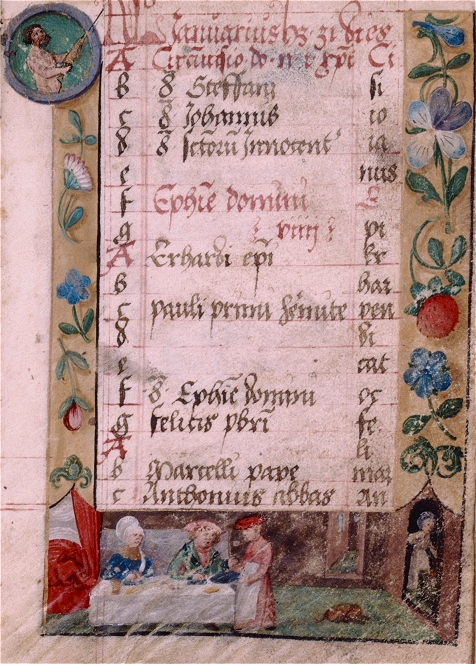 Januarius hz xxxi dies
A Circūcisio dō. n. i. xpī Ci
b 8 Steffani si
c 8 Johannis io
d 8 sctorū Innocent' ia
e nus
f Ephīe domini E
g viiij pi
A Erhardi epī kr
b har
c pauli primi hēmite ven
d di
e cat
f 8 Ephīe domini oc
g felicis pbrī fe
A li
b Marcelli pape mar
c Anthonius abbas an